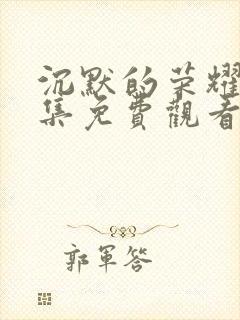 沉默的荣耀
集免費觀看
郭軍答